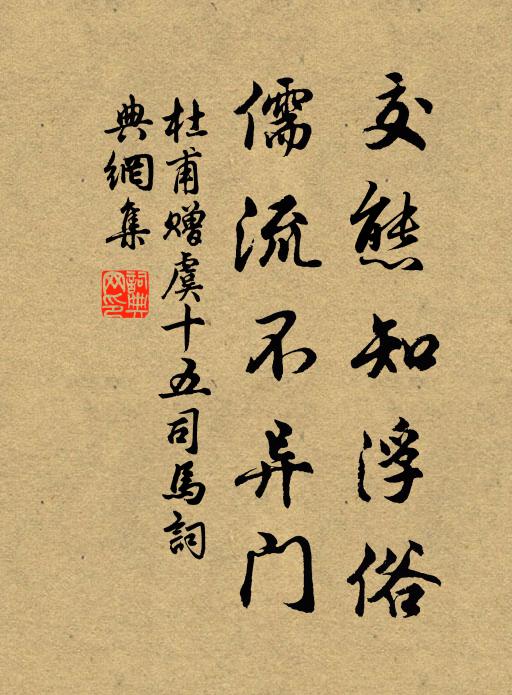 交態知浮俗
儒流不异门
杜甫赠虞十五司馬詞
典網集
詞典网印